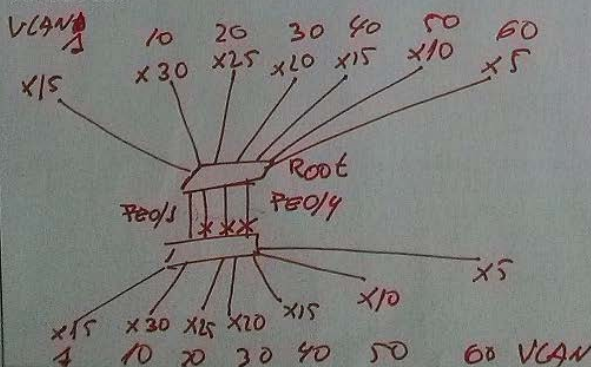 VLAN 1 10 20 30 40 50 60
x15 x30 x25 x20 x15 x10 x5
Root
FE0/1 FE0/4
x x x
x15 x30 x25 x20 x15 x10 x5
1 10 20 30 40 50 60 VLAN